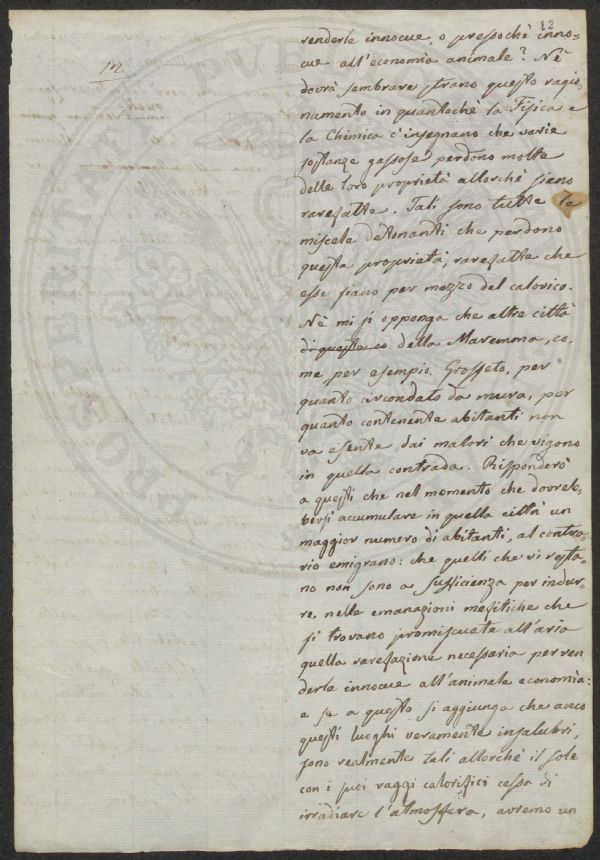 12
renderle innocue, o pressochè inno-
cue all'economia animale? Nè
dovrà sembrare strano questo ragio-
namento in quantochè la Fisica e
la Chimica c'insegnano che varie
sostanze gassose perdono molte
delle loro proprietà allorchè sieno
rarefatte. Tali sono tutte le
miscele detonanti che perdono
questa proprietà, rarefatte che
esse siano per mezzo del calorico.
Nè mi si opponga che altre città
di questa co della Maremma, co-
me per esempio, Grosseto, per
quanto circondato da mura, per
quanto contenente abitanti non
va esente dai malori che vigono
in quella contrada. Risponderò
a questi che nel momento che dovreb-
bersi accumulare in quella città un
maggior numero di abitanti, al contra-
rio emigrano: che quelli che vi resta-
no non sono a sufficienza per indur-
re, nelle emanazioni mefitiche che
si trovano promiscuate all'aria
quella rarefazione necessaria per ren
derle innocue all'animale economia:
e se a questo si aggiunga che anco
questi luoghi veramente insalubri,
sono realmente tali allorchè il sole
con i suoi raggi calorifici cessa di
irradiare l'atmosfera, avremo un